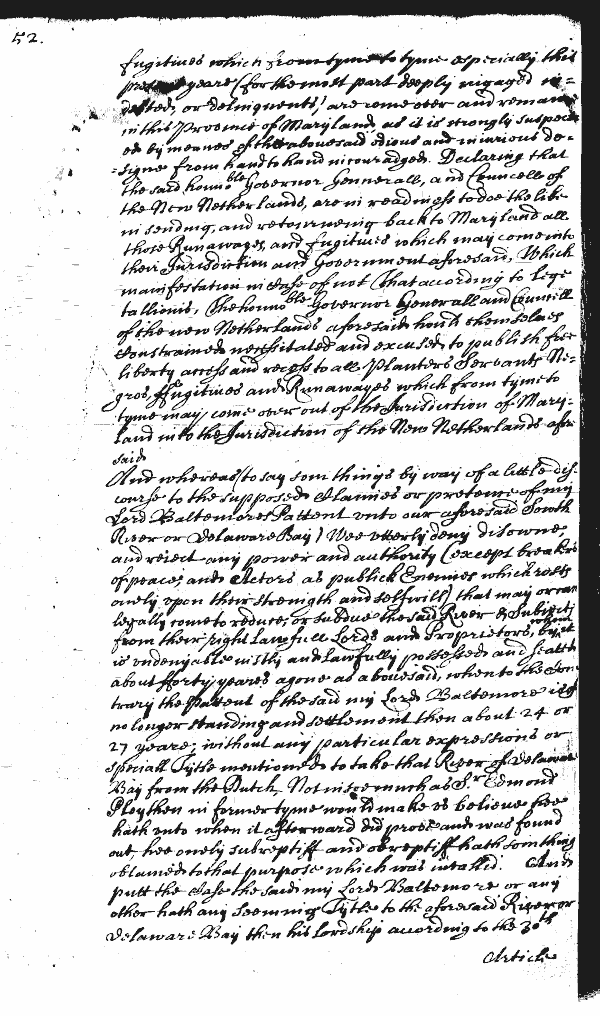 52.
fugitives which from tyme to tyme especially this
present yeare (for the most part deeply ingaged in=
debted, or delinquents) are come over and remaine
in this Province of Maryland, as it is strongly suspect
ed by meanes of the abovesaid odious and iniurious de=
=signe from hand to hand incouradged. Declaring that
the said honno:ble Governor Gennerall, and Councelle of
the New Netherlands, are in readiness to doe the like
in sending, and retourneing back to Maryland all
those Runawayes, and fugitives which may come into
their Jurisdiction and Government aforesaid, Which
manifestation in Case of not That according to Lege
tallionis, The honno:ble Governor Generall and Councill
of the new Netherlands aforesaid hould themselves
Constrained necessitated and excused to publish free
liberty access and recess to all Planters Servants Ne=
gros, ffugitives and Runawayes which from tyme to
tyme may come over out of the Jurisdiction of Mary=
land into the Jurisdiction of the New Netherlands afore
said
And whereas to say som things by way of a little dis-
course to the supposed Claimes or pretence of my
Lord Baltemores Pattent unto our aforesaid South
River or Delaware Bay) Wee utterly deny disowne
and reject any power and authority (except breakers
of peace, and Actors as publick Enemies which rests
onely upon their strength and selfwill) that may or can
legally come to reduce, or subdue the said River & Subjects
from their right Lawfull Lords and Proprietors, by whom it
is undeniable iustly and Lawfully possessed and seated
about fforty yeares agone as abovesaid, when to the Con
trary the Pattent of the said my Lord Baltemore is of
no longer standing and settlement then about 24 or
27 yeare; without any particular expressions or
speciall Tytle mentioned to take that River of Delaware
Bay from the Dutch, Not in soe much as Sr Edmond
Ploythen in former tyme would make us believe hee
hath unto when it afterward did prove and was found
out, hee onely subreptiff and obreptiff hath something
obtained to that purpose which was invallid. And
putt the Case the said my Lord Baltemore or any
other hath any seeming Tytle to the aforesaid River or
Delaware Bay then his lordship according to the 30th
Article